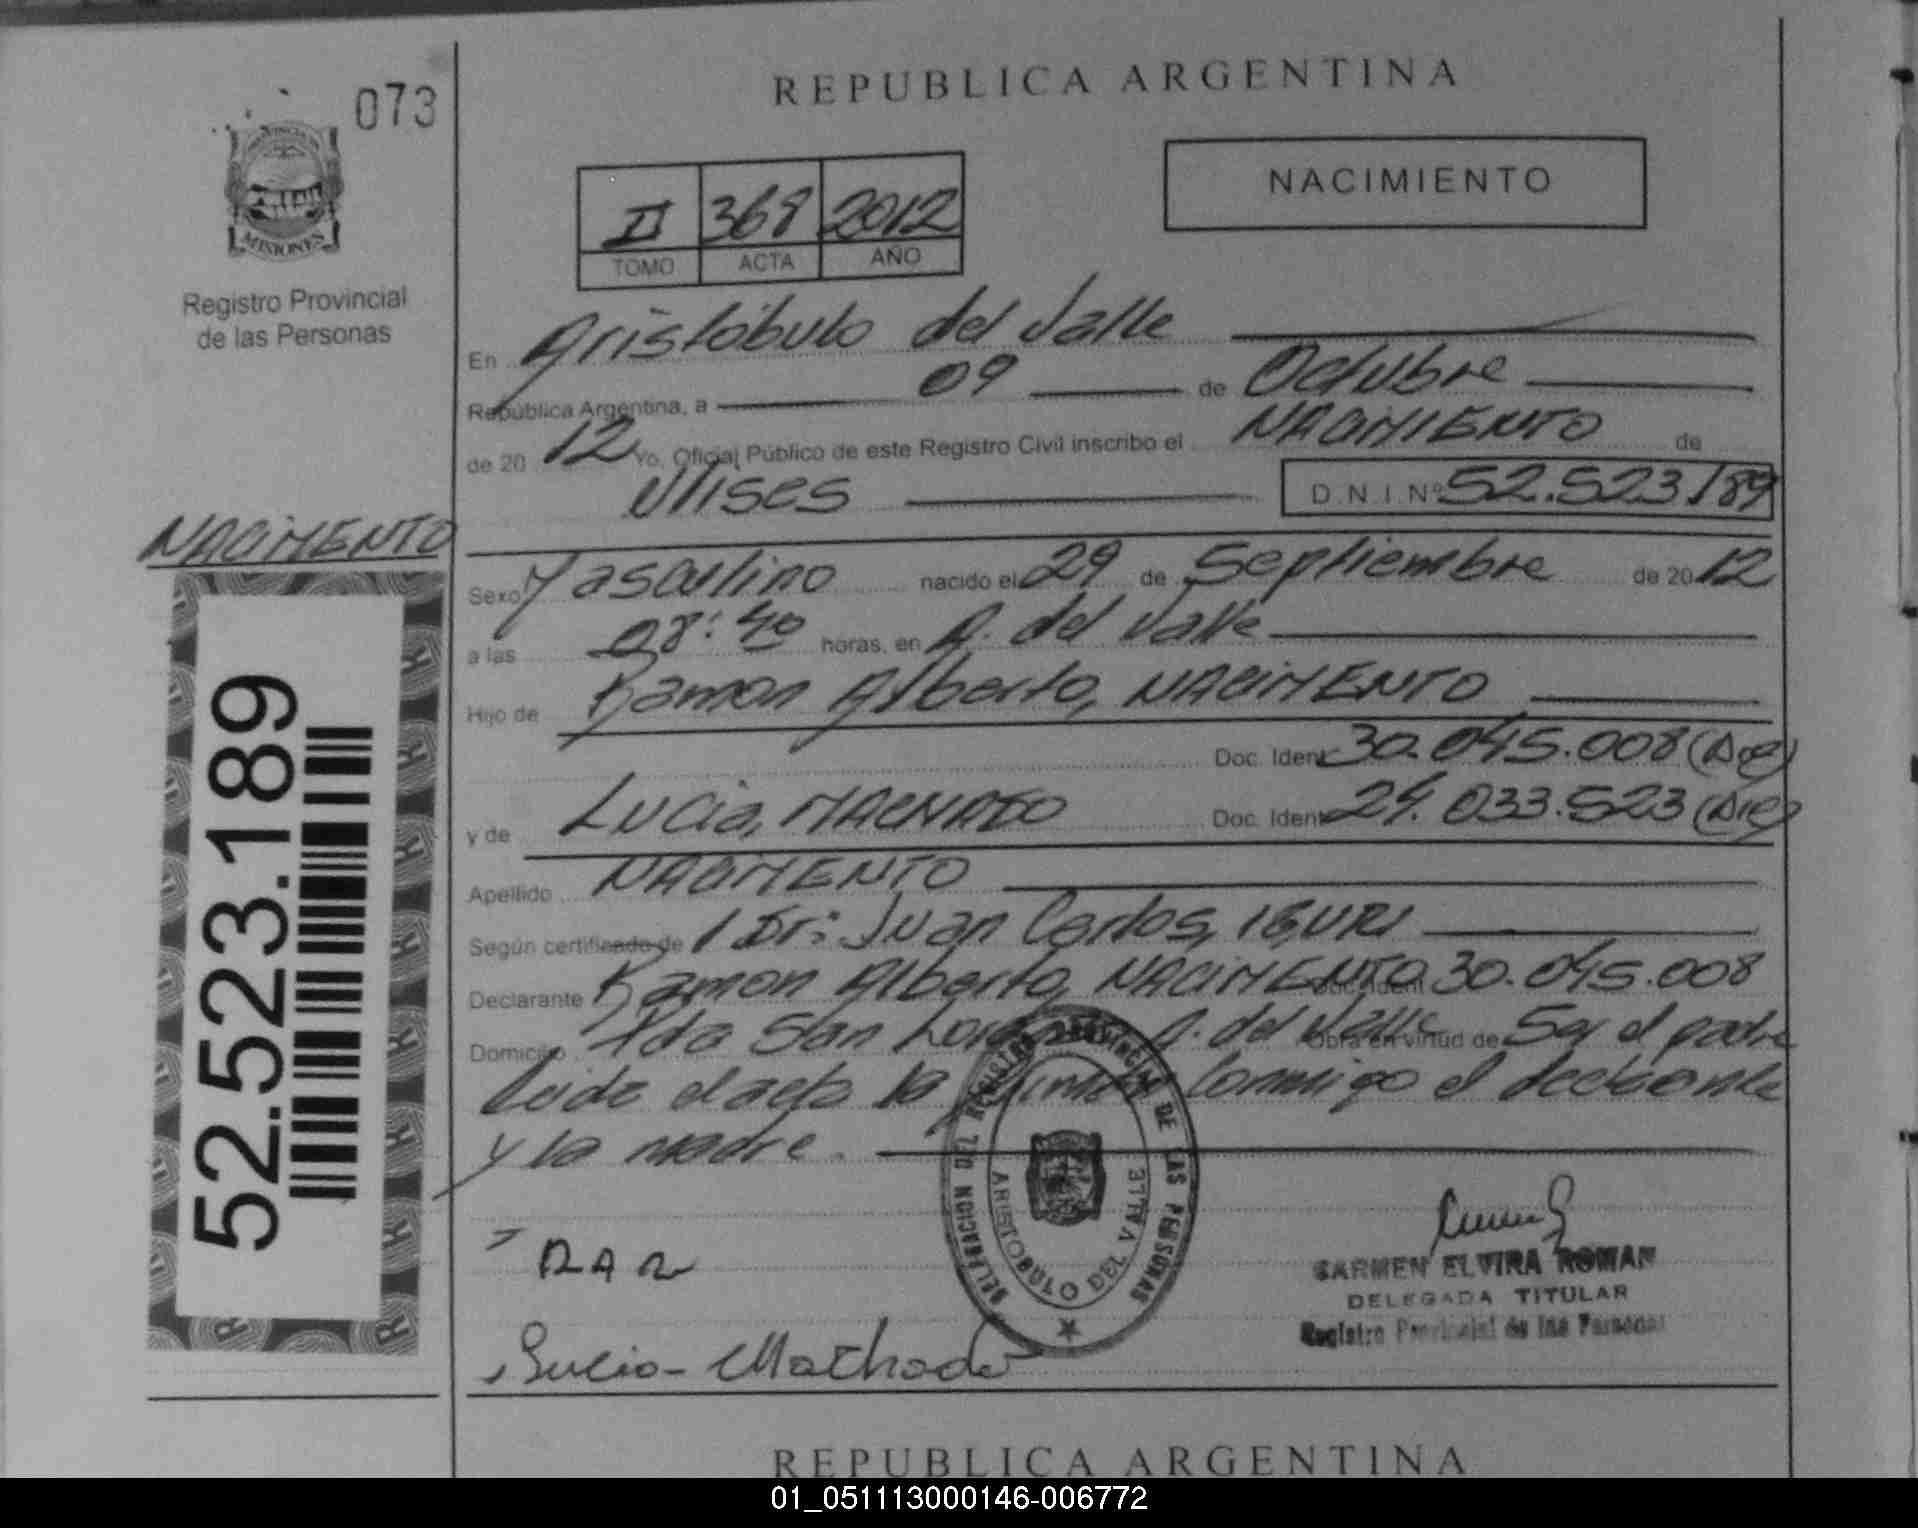 073
REPUBLICA ARGENTINA
NACIMIENTO
II 368 2012
TOMO ACTA AÑO
MISIONES
Registro Provincial
de las Personas
En Aristóbulo del Valle
República Argentina, a 09 de Octubre
de 20 12 Yo, Oficial Público de este Registro Civil inscribo el NACIMIENTO de
Ulises D.N.I. Nº 52.523.189
NACIMENTO
Sexo Masculino nacido el 29 de Septiembre de 20 12
a las 08:40 horas, en A. del Valle
Hijo de Ramon Alberto, NACIMENTO
Doc. Ident. 30.045.008 (Arg)
y de Lucia, MACHADO Doc. Ident. 24.033.523 (Arg)
Apellido NACIMENTO
Según certificado de / Dr: Juan Carlos,
Declarante Ramon Alberto, NACIMENTO Doc. Ident. 30.045.008
Domicilio Pda San Lorenzo A. del Valle Obra en virtud de Ser el padre
Leida el acta la firman conmigo el declarante
y la madre.
52.523.189
DELEGACION DEL REGISTRO PROVINCIAL DE LAS PERSONAS
ARISTOBULO DEL VALLE
RAN
CARMEN ELVIRA ROMAN
DELEGADA TITULAR
Registro Provincial de las Personas
Lucia - Machado
REPUBLICA ARGENTINA
01_051113000146-006772